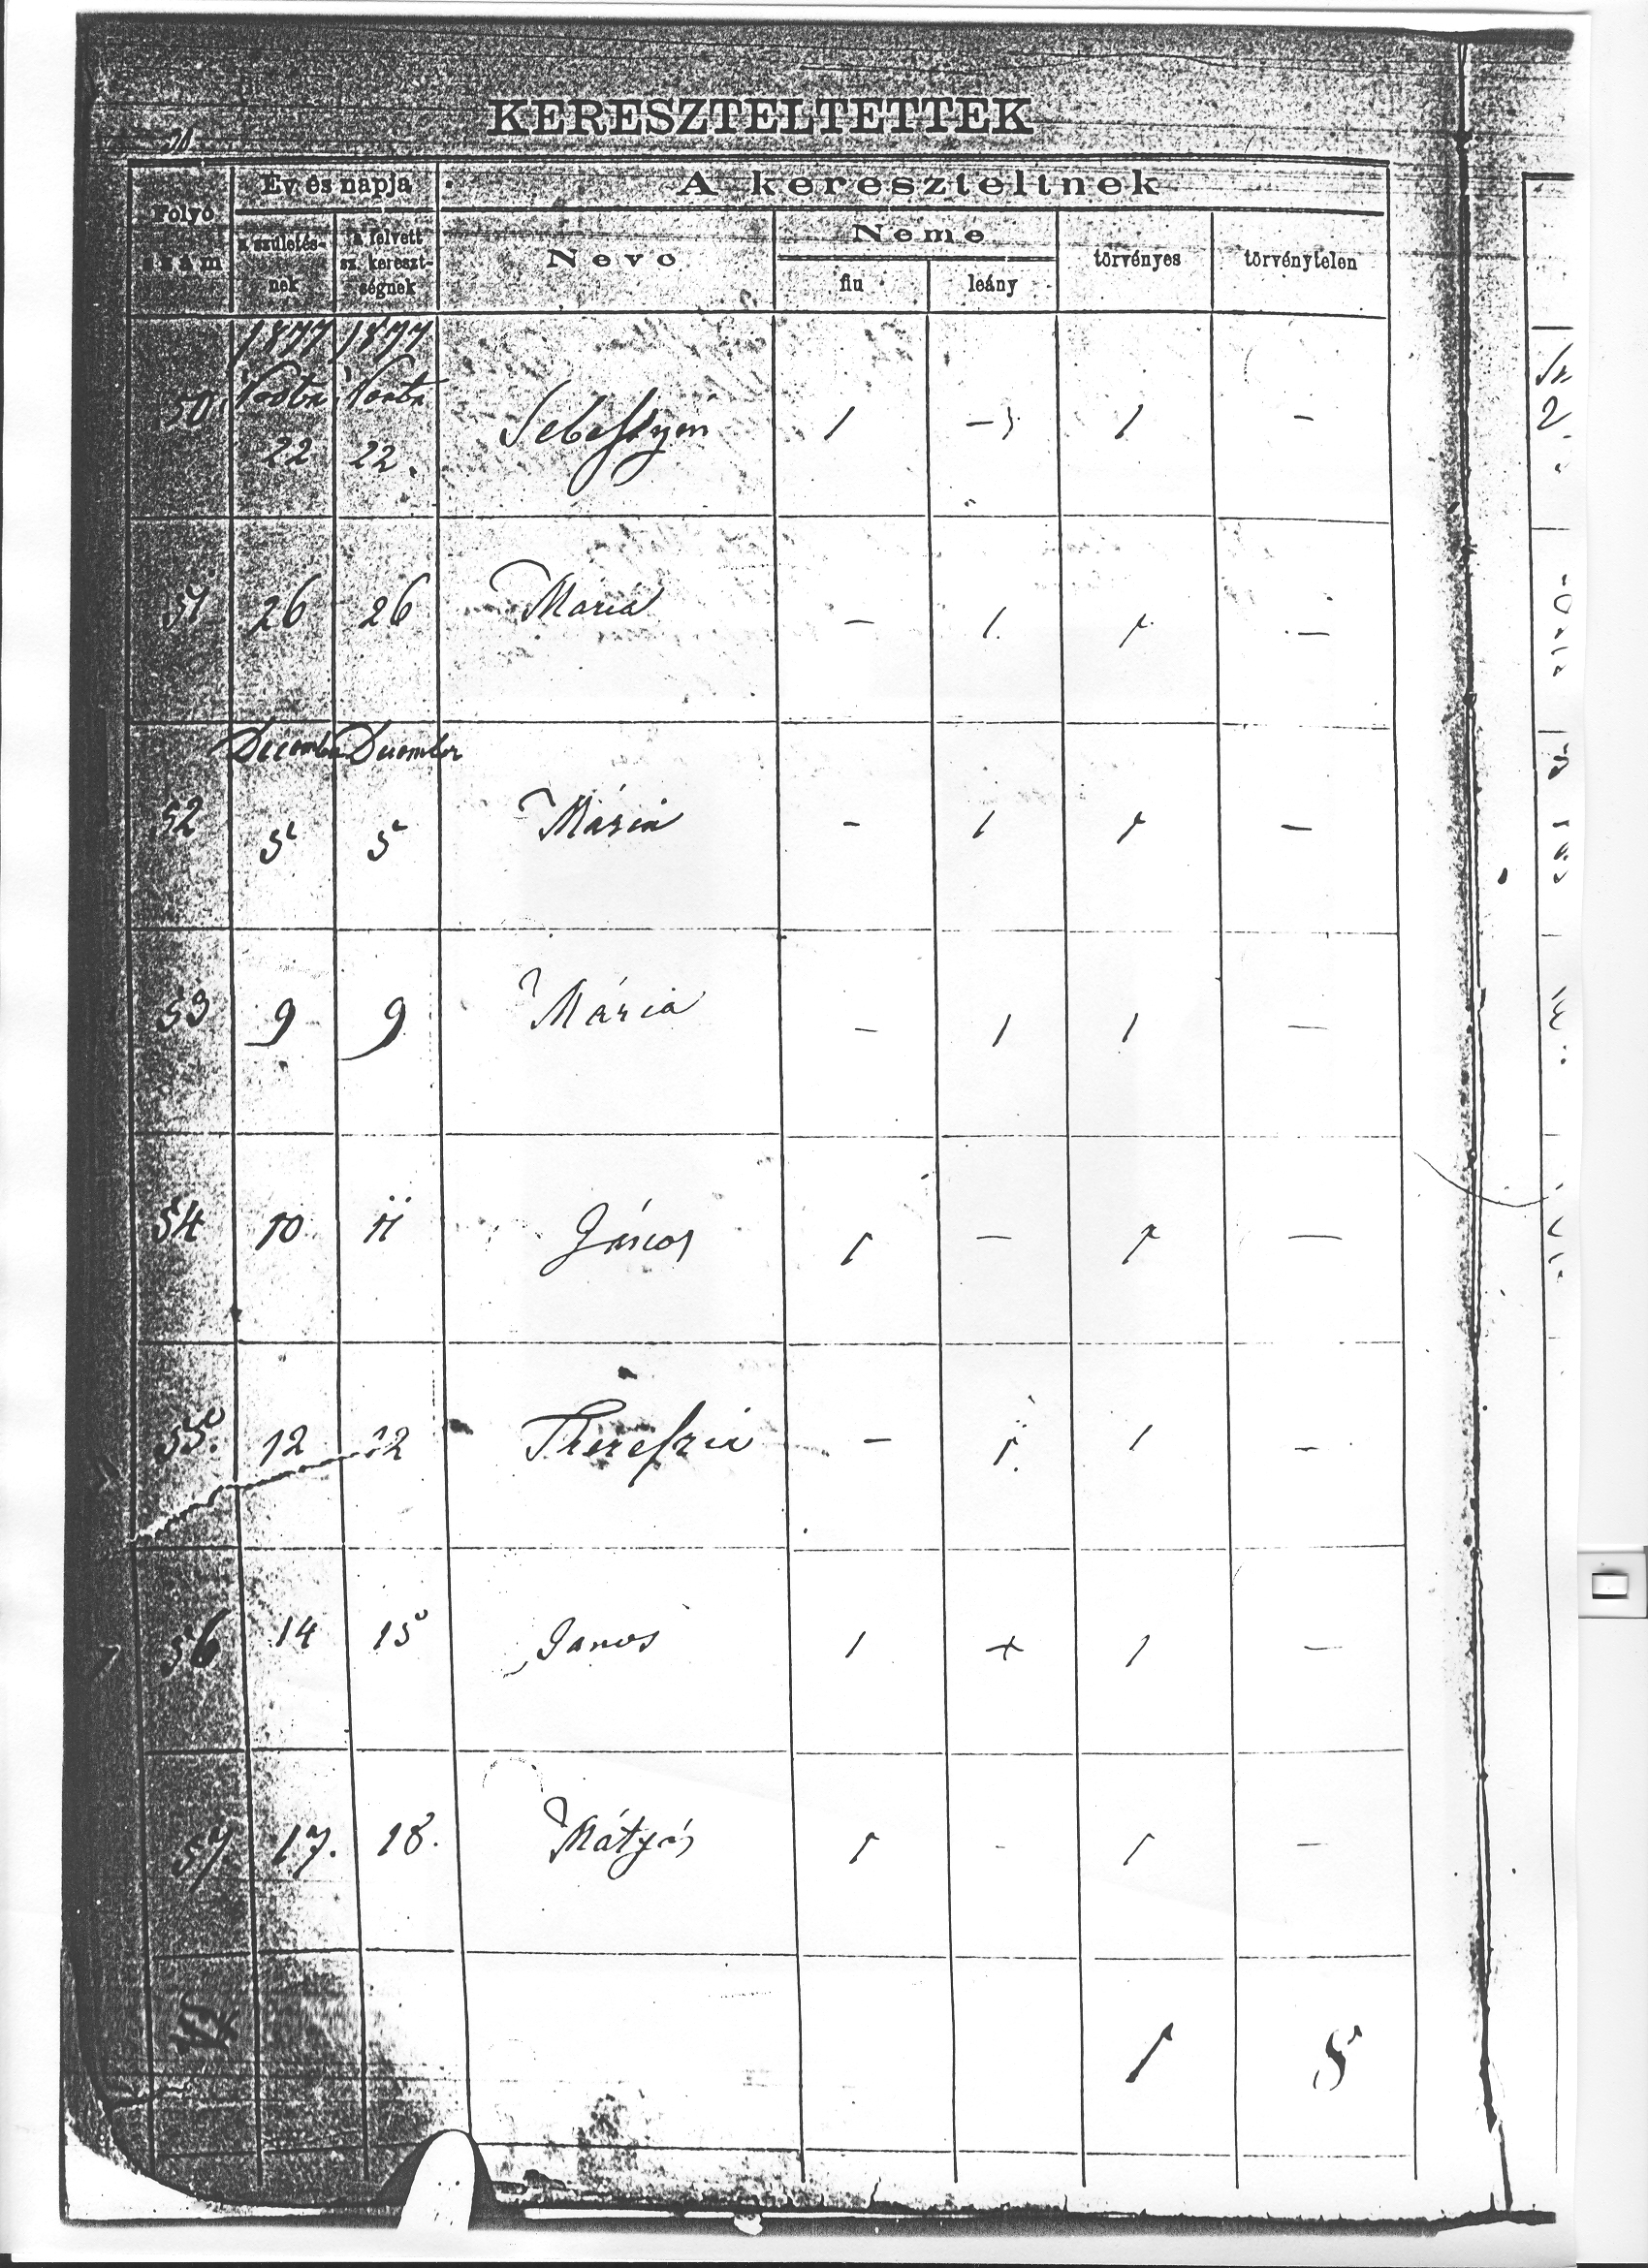 KERESZTELTETTEK
Folyó szám
Év és napja
a születés-
nek
a felvett
sz. kereszt-
ségnek
A kereszteltnek
Neve
Neme
fiu
leány
törvényes
törvénytelen
1877 1877
50. 22 22. Sebestyén 1 - 1 -
51 26 26 Mária - 1. 1 -
December December
52 5 5 Mária - 1 1 -
53 9 9 Mária - 1 1 -
54 10 11 János 1 - 1 -
55. 12 12 Thereszia - 1. 1 -
56 14 15 Janos 1 + 1 -
57. 17. 18. Mátyás 1 - 1 -